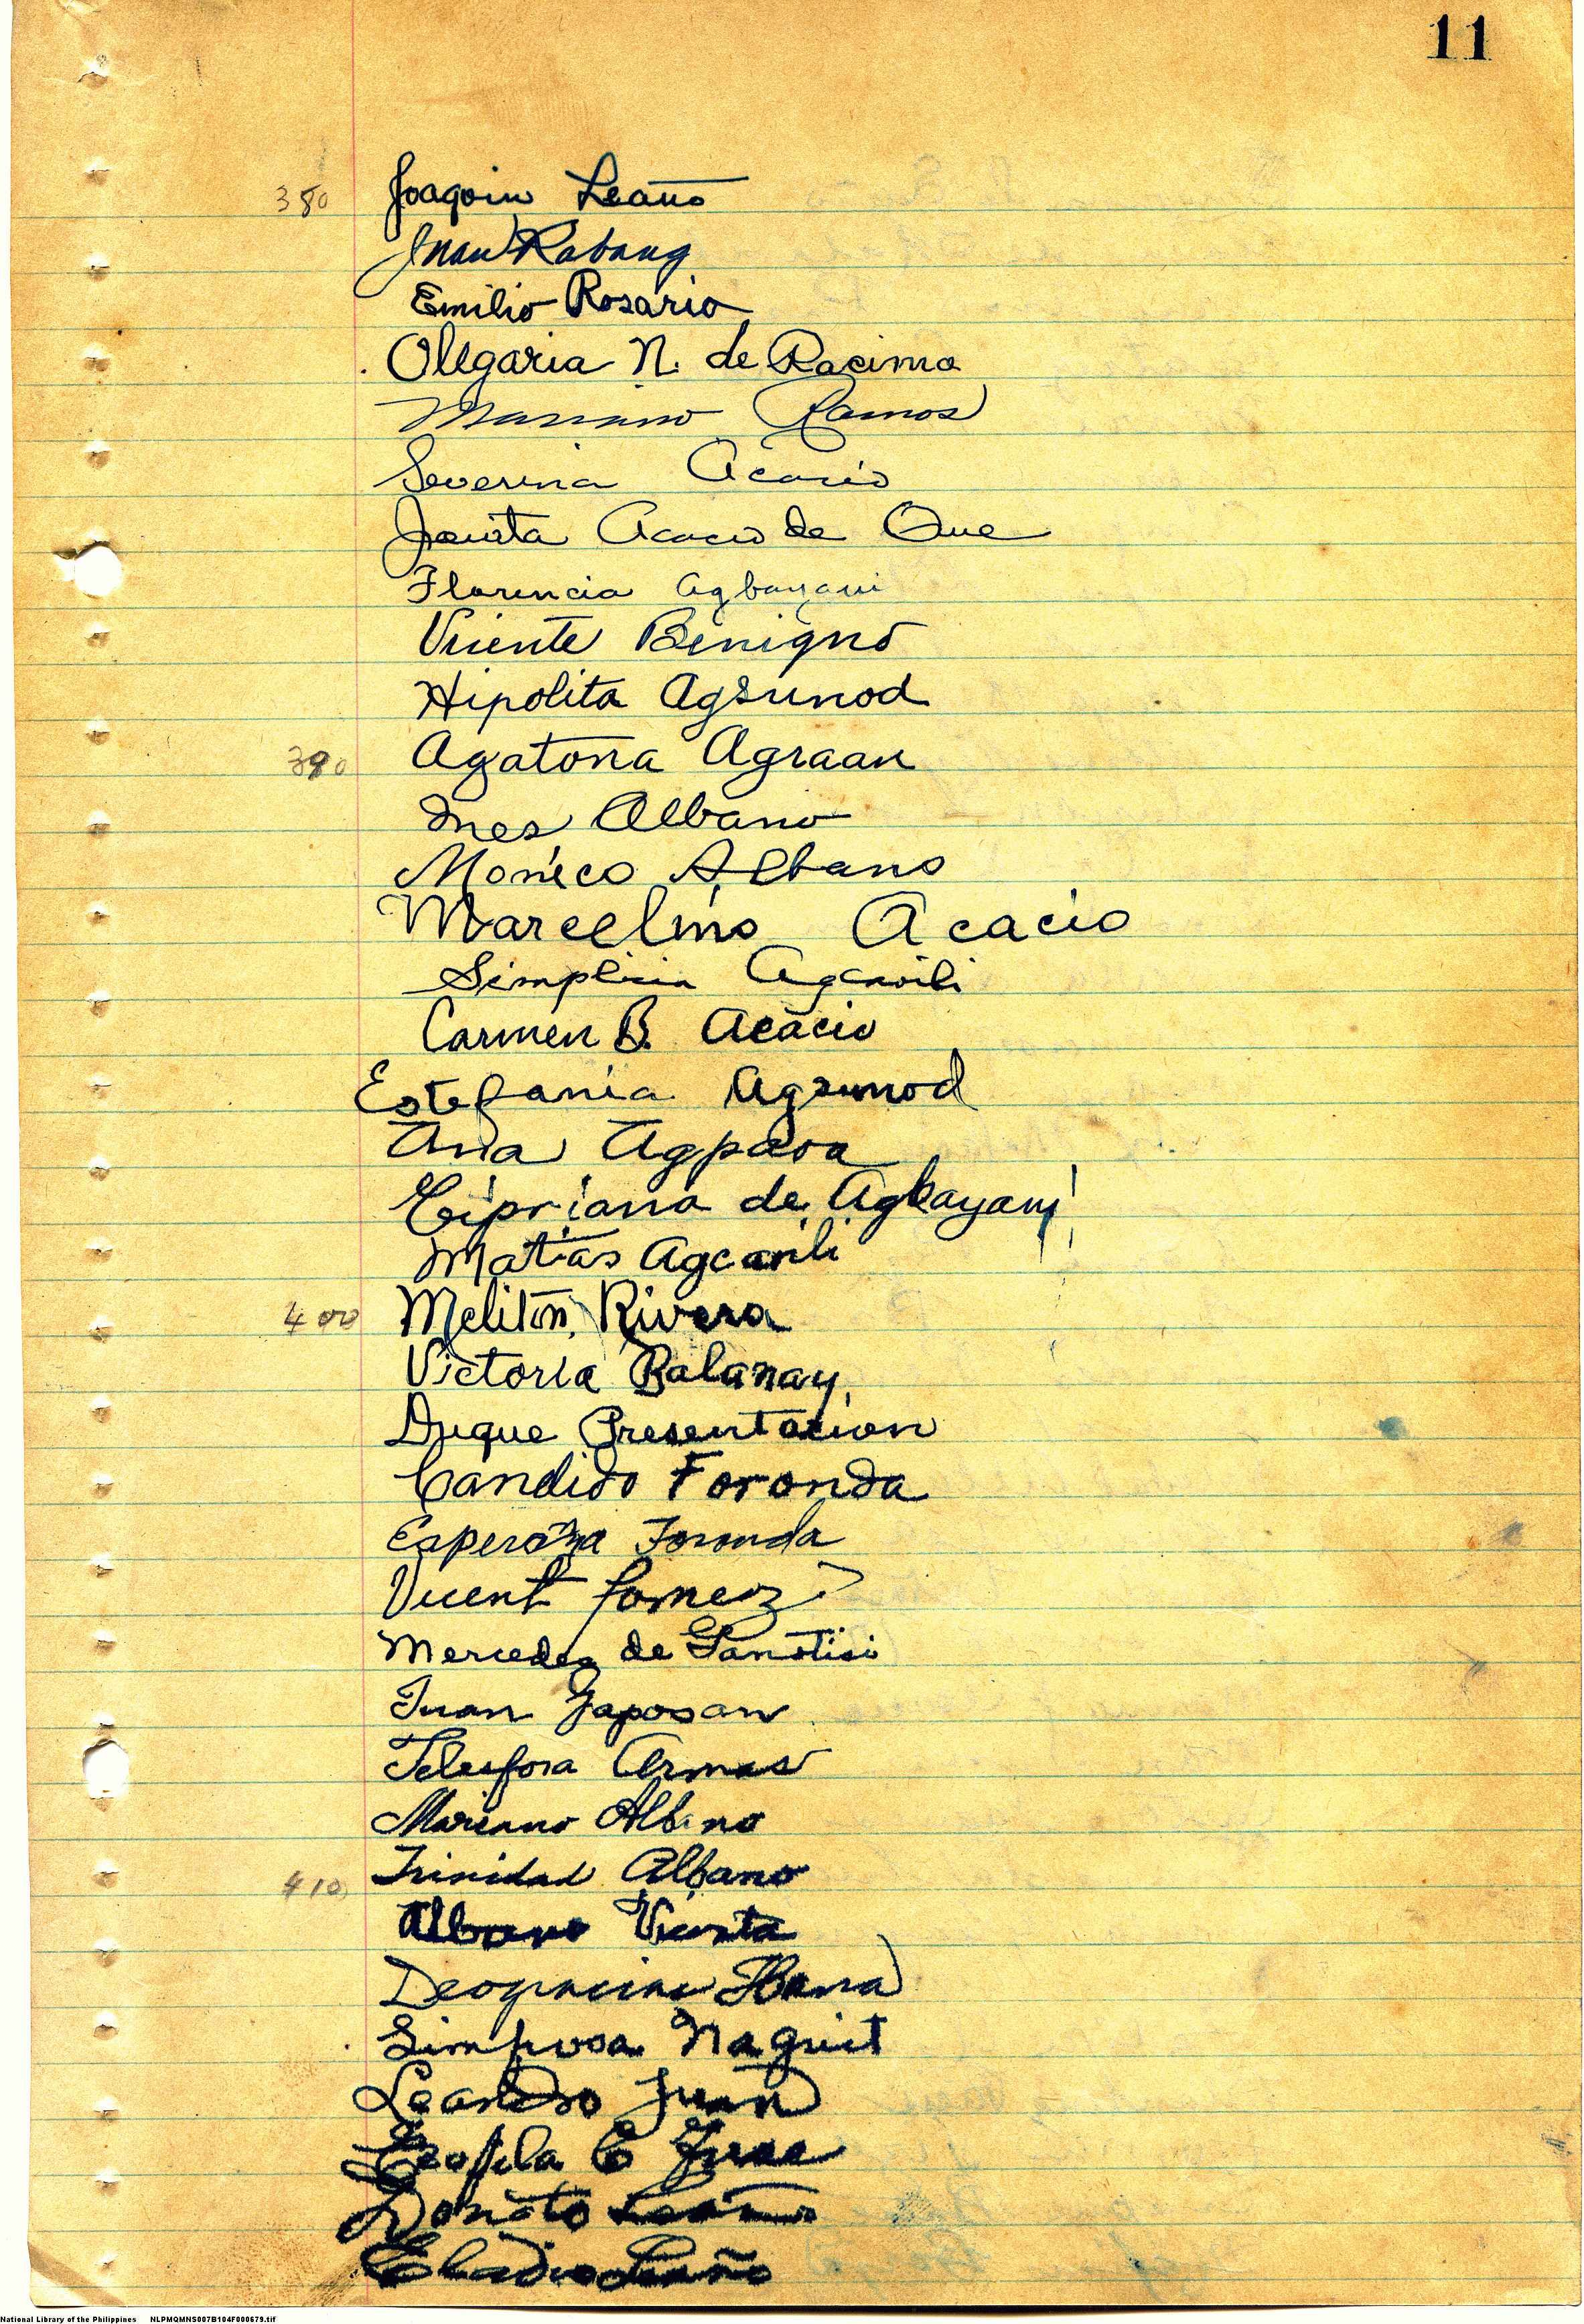 11
380 Joaquin Leaño
Juan Rabang
Emilio Rosario
Ollgaria N. de Racimo
Mariano Ramos
Severina Acacio
Juanita Acacio de Que
Florencia Agbayani
Vicente Benigno
Hipolita Agsunod
390 Agatona Agraan
Ines Albano
Monico Albano
Marcelino Acacio
Simplicia Agcaoili
Carmen B. Acacio
Estefania Agsunod
Ana Agpaoa
Cipriana de Agbayani
Matias Agcaoili
400 Meliton Rivera
Victoria Balanay
Duque Presentacion
Candido Foronda
Esperanza Foronda
Vicent Gomez
Mercedes de
Juan Gaposan
Telesfora Armas
Mariano Albano
410 Trinidad Albano
Albano Vicenta
Deogracias
Simprosa Naguit
Leandro Juan
Donato Leaño
Eladio Leaño
National Library of the Philippines NLPMQMNS007B104F000679.tif